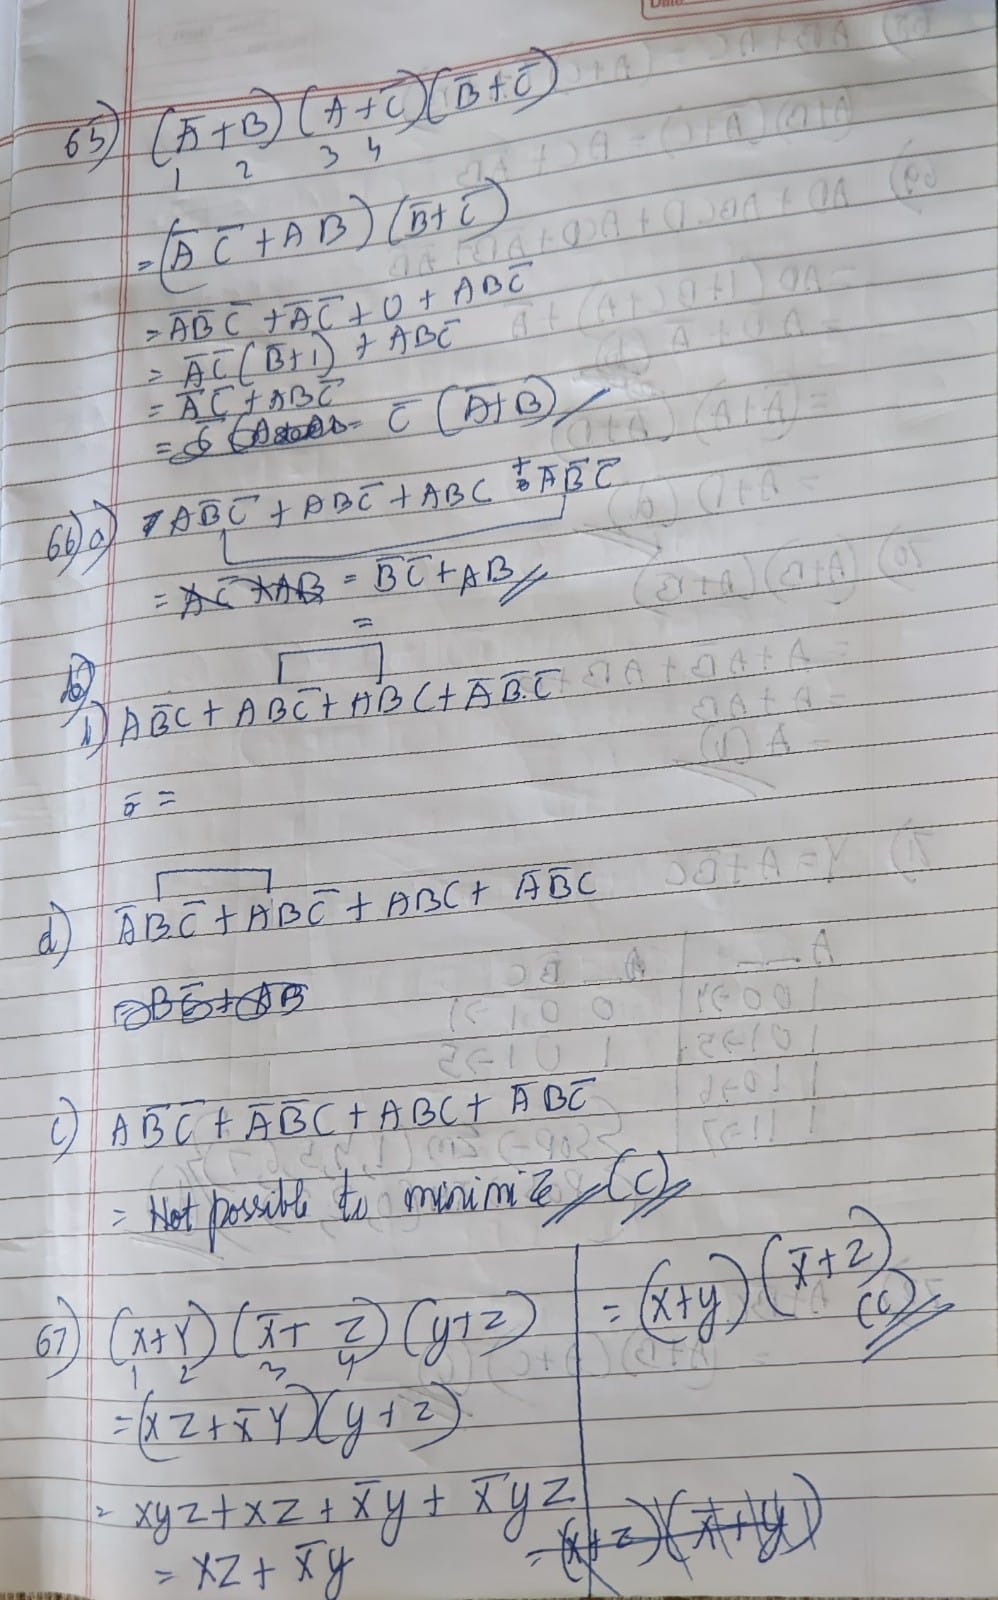 65) (A̅+B) (A+C̅)(B̅+C̅)
1 2 3 4
=(A̅ C̅+AB) (B̅+C̅)
=A̅B̅C̅+A̅C̅+0+ABC̅
= A̅C̅(B̅+1) + ABC̅
= A̅C̅+ABC̅
= = C̅ (A̅+B)
66)a) AB̅C̅+ABC̅+ABC +A̅B̅C̅
= AC̅+AB = B̅C̅+AB
=
b) AB̅C+ABC̅+ABC+A̅B̅C̅
=
d) A̅BC̅+ABC̅+ABC+ A̅B̅C
=BC̅+AB
c) AB̅C̅+A̅B̅C+ABC+A̅BC̅
= Not possible to minimize (C)
67) (x+Y)(x̅+ Z)(y+z)
1 2 3 4
=(xz+x̅Y)(y+z)
= xyz+xz+x̅y+x̅yz
= xz+x̅y
=(x+z)(x̅+y)
=(x+y)(x̅+z)
(C)